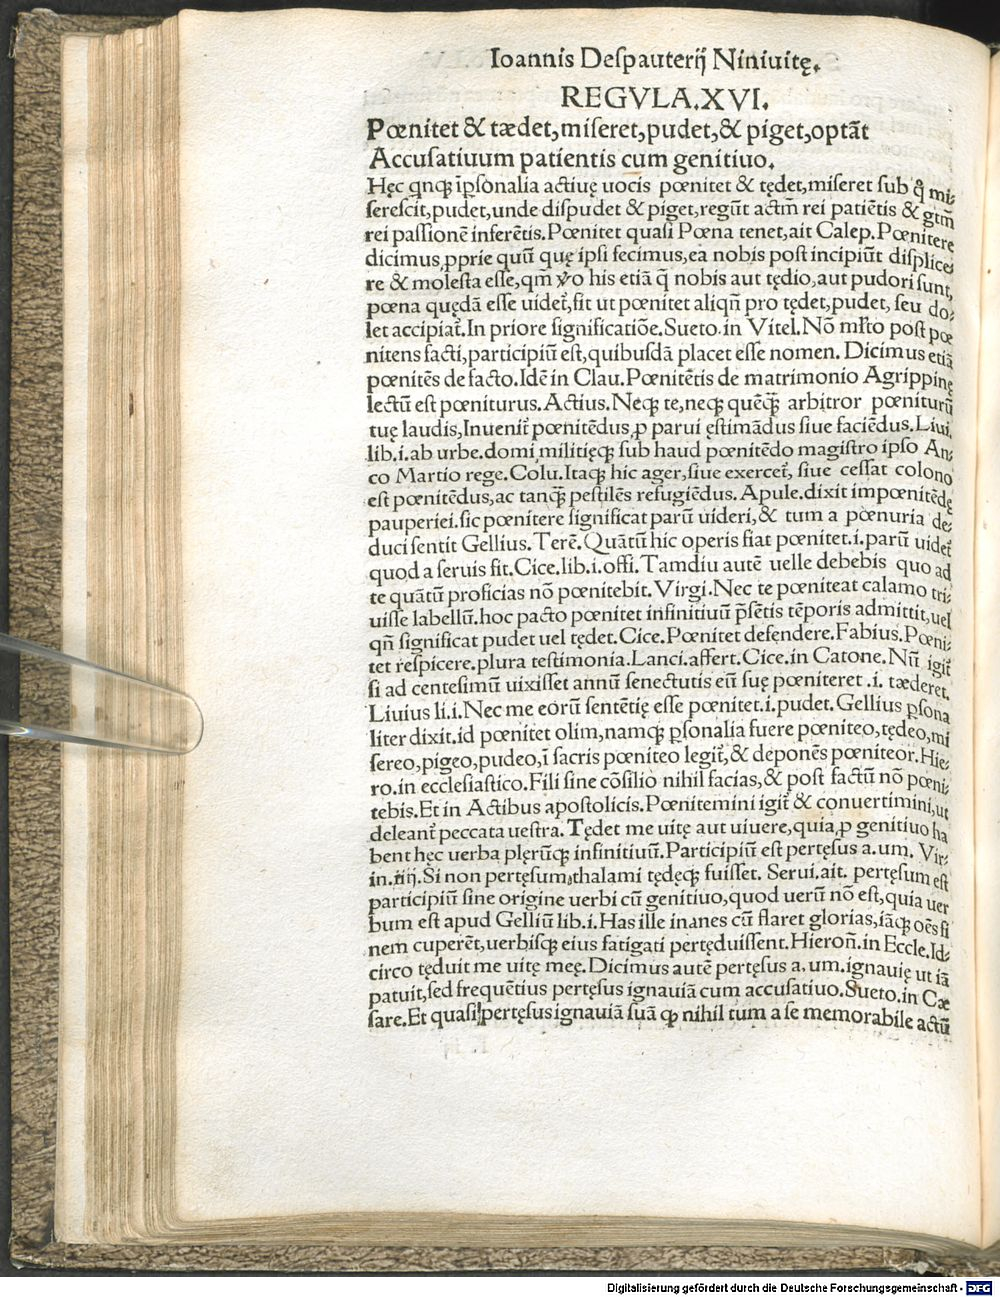 Ioannis Deſpauterĳ Niniuitę.
REGVLA.XVI.
Pœnitet & tædet,miſeret,pudet,& piget,optāt
Accuſatiuum patientis cum genitiuo.
Hęc qnq; īpſonalia actiuę uocis pœnitet & tędet,miſeret ſub q̄ mi⸗
ſereſcit,pudet,unde diſpudet & piget,regūt actm̄ rei patiētis & gtm̄
rei paſſionē inferētis.Pœnitet quaſi Pœna tenet,ait Calep.Pœnitere
dicimus ꝓprie quū quę ipſi fecimus,ea nobis poſt incipiūt diſplice⸗
re & moleſta eſſe,qm̄ ỽo his etiā q̄ nobis aut tędio,aut pudori ſunt,
pœna quędā eſſe uidet᷑,fit ut pœnitet aliqn̄ pro tędet,pudet, ſeu do⸗
let accipiat᷑.In priore ſignificatiōe.Sueto.in Vitel.Nō ml̄to poſt pœ
nitens facti,participiū eſt,quibuſdā placet eſſe nomen. Dicimus etiā
pœnitēs de facto.Idē in Clau.Pœnitētis de matrimonio Agrippinę
lectū eſt pœniturus.Actius.Neq; te,neq; quēq̄; arbitror pœniturū
tuę laudis,Inuenit᷑ pœnitēdus ꝓ parui ęſtimādus ſiue faciēdus.Liui.
lib.i.ab urbe.domi militięq; ſub haud pœnitēdo magiſtro ipſo An⸗
co Martio rege.Colu.Itaq; hic ager,ſiue exercet᷑, ſiue ceſſat colono
eſt pœnitēdus,ac tanq̄; peſtilēs refugiēdus.Apule.dixit impœnitēdę
pauperiei.ſic pœnitere ſignificat parū uideri,& tum a pœnuria de⸗
duci ſentit Gellius.Terē.Quātū hic operis fiat pœnitet.i.parū uidet᷑
quod a ſeruis fit.Cice.lib.i.offi.Tamdiu autē uelle debebis quo ad
te quātū proficias nō pœnitebit.Virgi.Nec te pœniteat calamo tri⸗
uiſſe labellū.hoc pacto pœnitet infinitiuū p̄ſētis tēporis admittit,uel
qn̄ ſignificat pudet uel tędet.Cice.Pœnitet defendere.Fabius.Pœni⸗
tet reſpicere.plura teſtimonia.Lanci.affert.Cice.in Catone.Nū igit᷑
ſi ad centeſimū uixiſſet annū ſenectutis eū ſuę pœniteret .i. tæderet.
Liuius li.i.Nec me eorū ſentētię eſſe pœnitet.i.pudet.Gellius ꝑſona
liter dixit.id pœnitet olim,namq; ꝑſonalia fuere pœniteo,tędeo,mi
ſereo,pigeo,pudeo,ī ſacris pœniteo legit᷑,& deponēs pœniteor.Hie⸗
ro.in eccleſiaſtico.Fili ſine cōſilio nihil facias,& poſt factū nō pœni⸗
tebis.Et in Actibus apoſtolicis.Pœnitemini igit᷑ & conuertimini,ut
deleant᷑ peccata ueſtra.Tędet me uitę aut uiuere,quia ꝓ genitiuo ha
bent hęc uerba plęrūq; infinitiuū.Participiū eſt pertęſus a.um. Vir⸗
in.iiĳ.Si non pertęſum thalami tędęq; fuiſſet. Serui.ait. pertęſum eſt
participiū ſine origine uerbi cū genitiuo,quod uerū nō eſt,quia uer
bum eſt apud Gelliū lib.i.Has ille inanes cū flaret glorias,iāq; oēs fi
nem cuperēt,uerbiſq; eius fatigati pertęduiſſent.Hieron̄.in Eccle.Id⸗
circo tęduit me uitę meę.Dicimus autē pertęſus a.um.ignauię ut iā
patuit,ſed frequētius pertęſus ignauiā cum accuſatiuo.Sueto.in Cæ
ſare.Et quaſi pertęſus ignauiā ſuā q; nihil tum a ſe memorabile actū
Digitalisierung gefördert durch die Deutsche Forschungsgemeinschaft - DFG